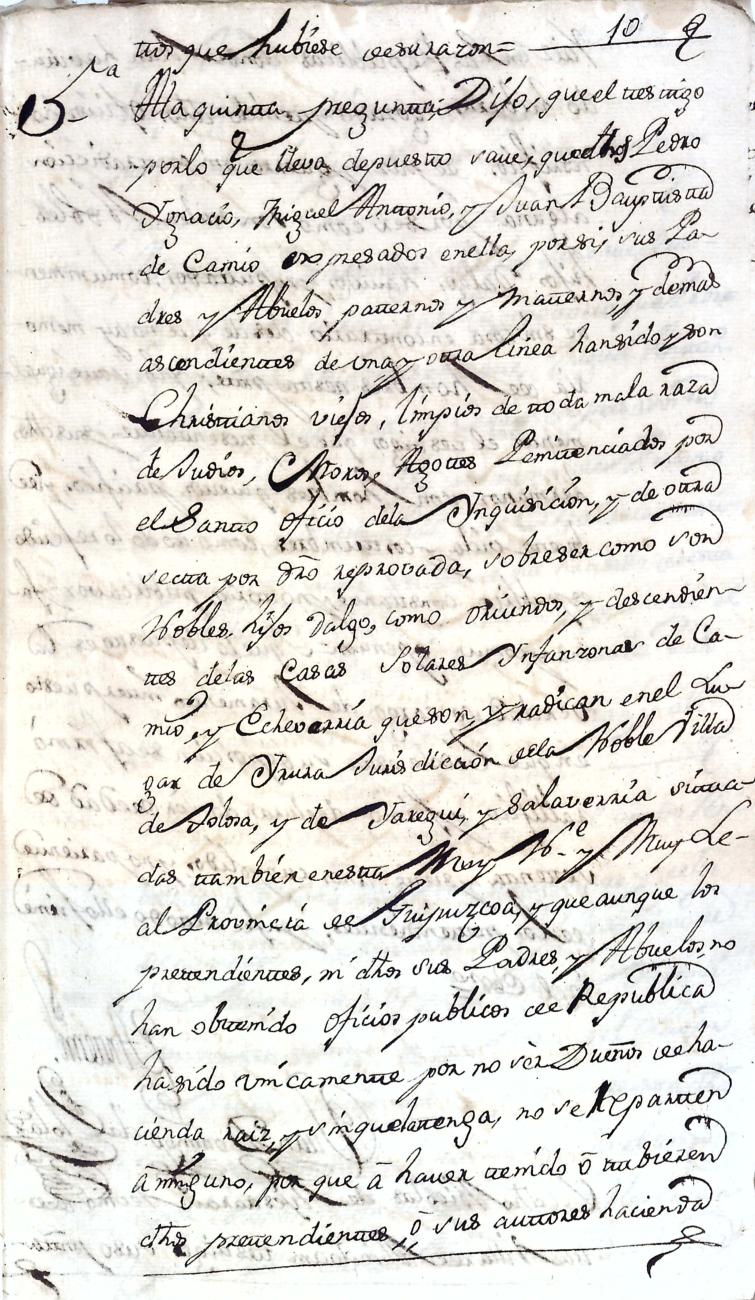 10
ttos que hubiese de su razon=
5ª
A la quintta preguntta, Dijo, que el testigo
por lo que lleva depuestto save, que dhos Pedro
Ygnacio, Miguel Anttonio, y Juan Bauptistta
de Camio expresados en ella, por si, sus Pa-
dres y Abuelos patternos y matternos, y demas
ascendienttes de una y otta linea han sido y son
Christtianos viejos, limpios de ttoda mala raza
de Judios, Moros, Agottes Penittenciados por
el Santto oficio de la Ynquisicion, y de otra
sectta por dro reprovada, sobre ser como son
Nobles, hijos dalgo, como oriundos, y descendien-
ttes de las Casas Solares Ynfanzonas de Ca-
mio, y Echeverria que son y radican en el Lu-
gar de Yrura Jurisdiccion de la Noble Villa
de Tolosa, y de Yaregui, y Salaverria sittua-
das ttambien en estta Muy N.e y Muy Le-
al Provincia de Guipuzcoa, y que aunque los
prettendienttes, ni dhos sus Padres, y Abuelos, no
han obttenido oficios publicos de Republica
ha sido unicamentte por no sèr Dueños de ha-
cienda raiz, y sin que la ttenga, no se Repartten
à ninguno, por que à haver ttenido ò ttubieren
dhos prettendienttes, ò sus auttores hacienda